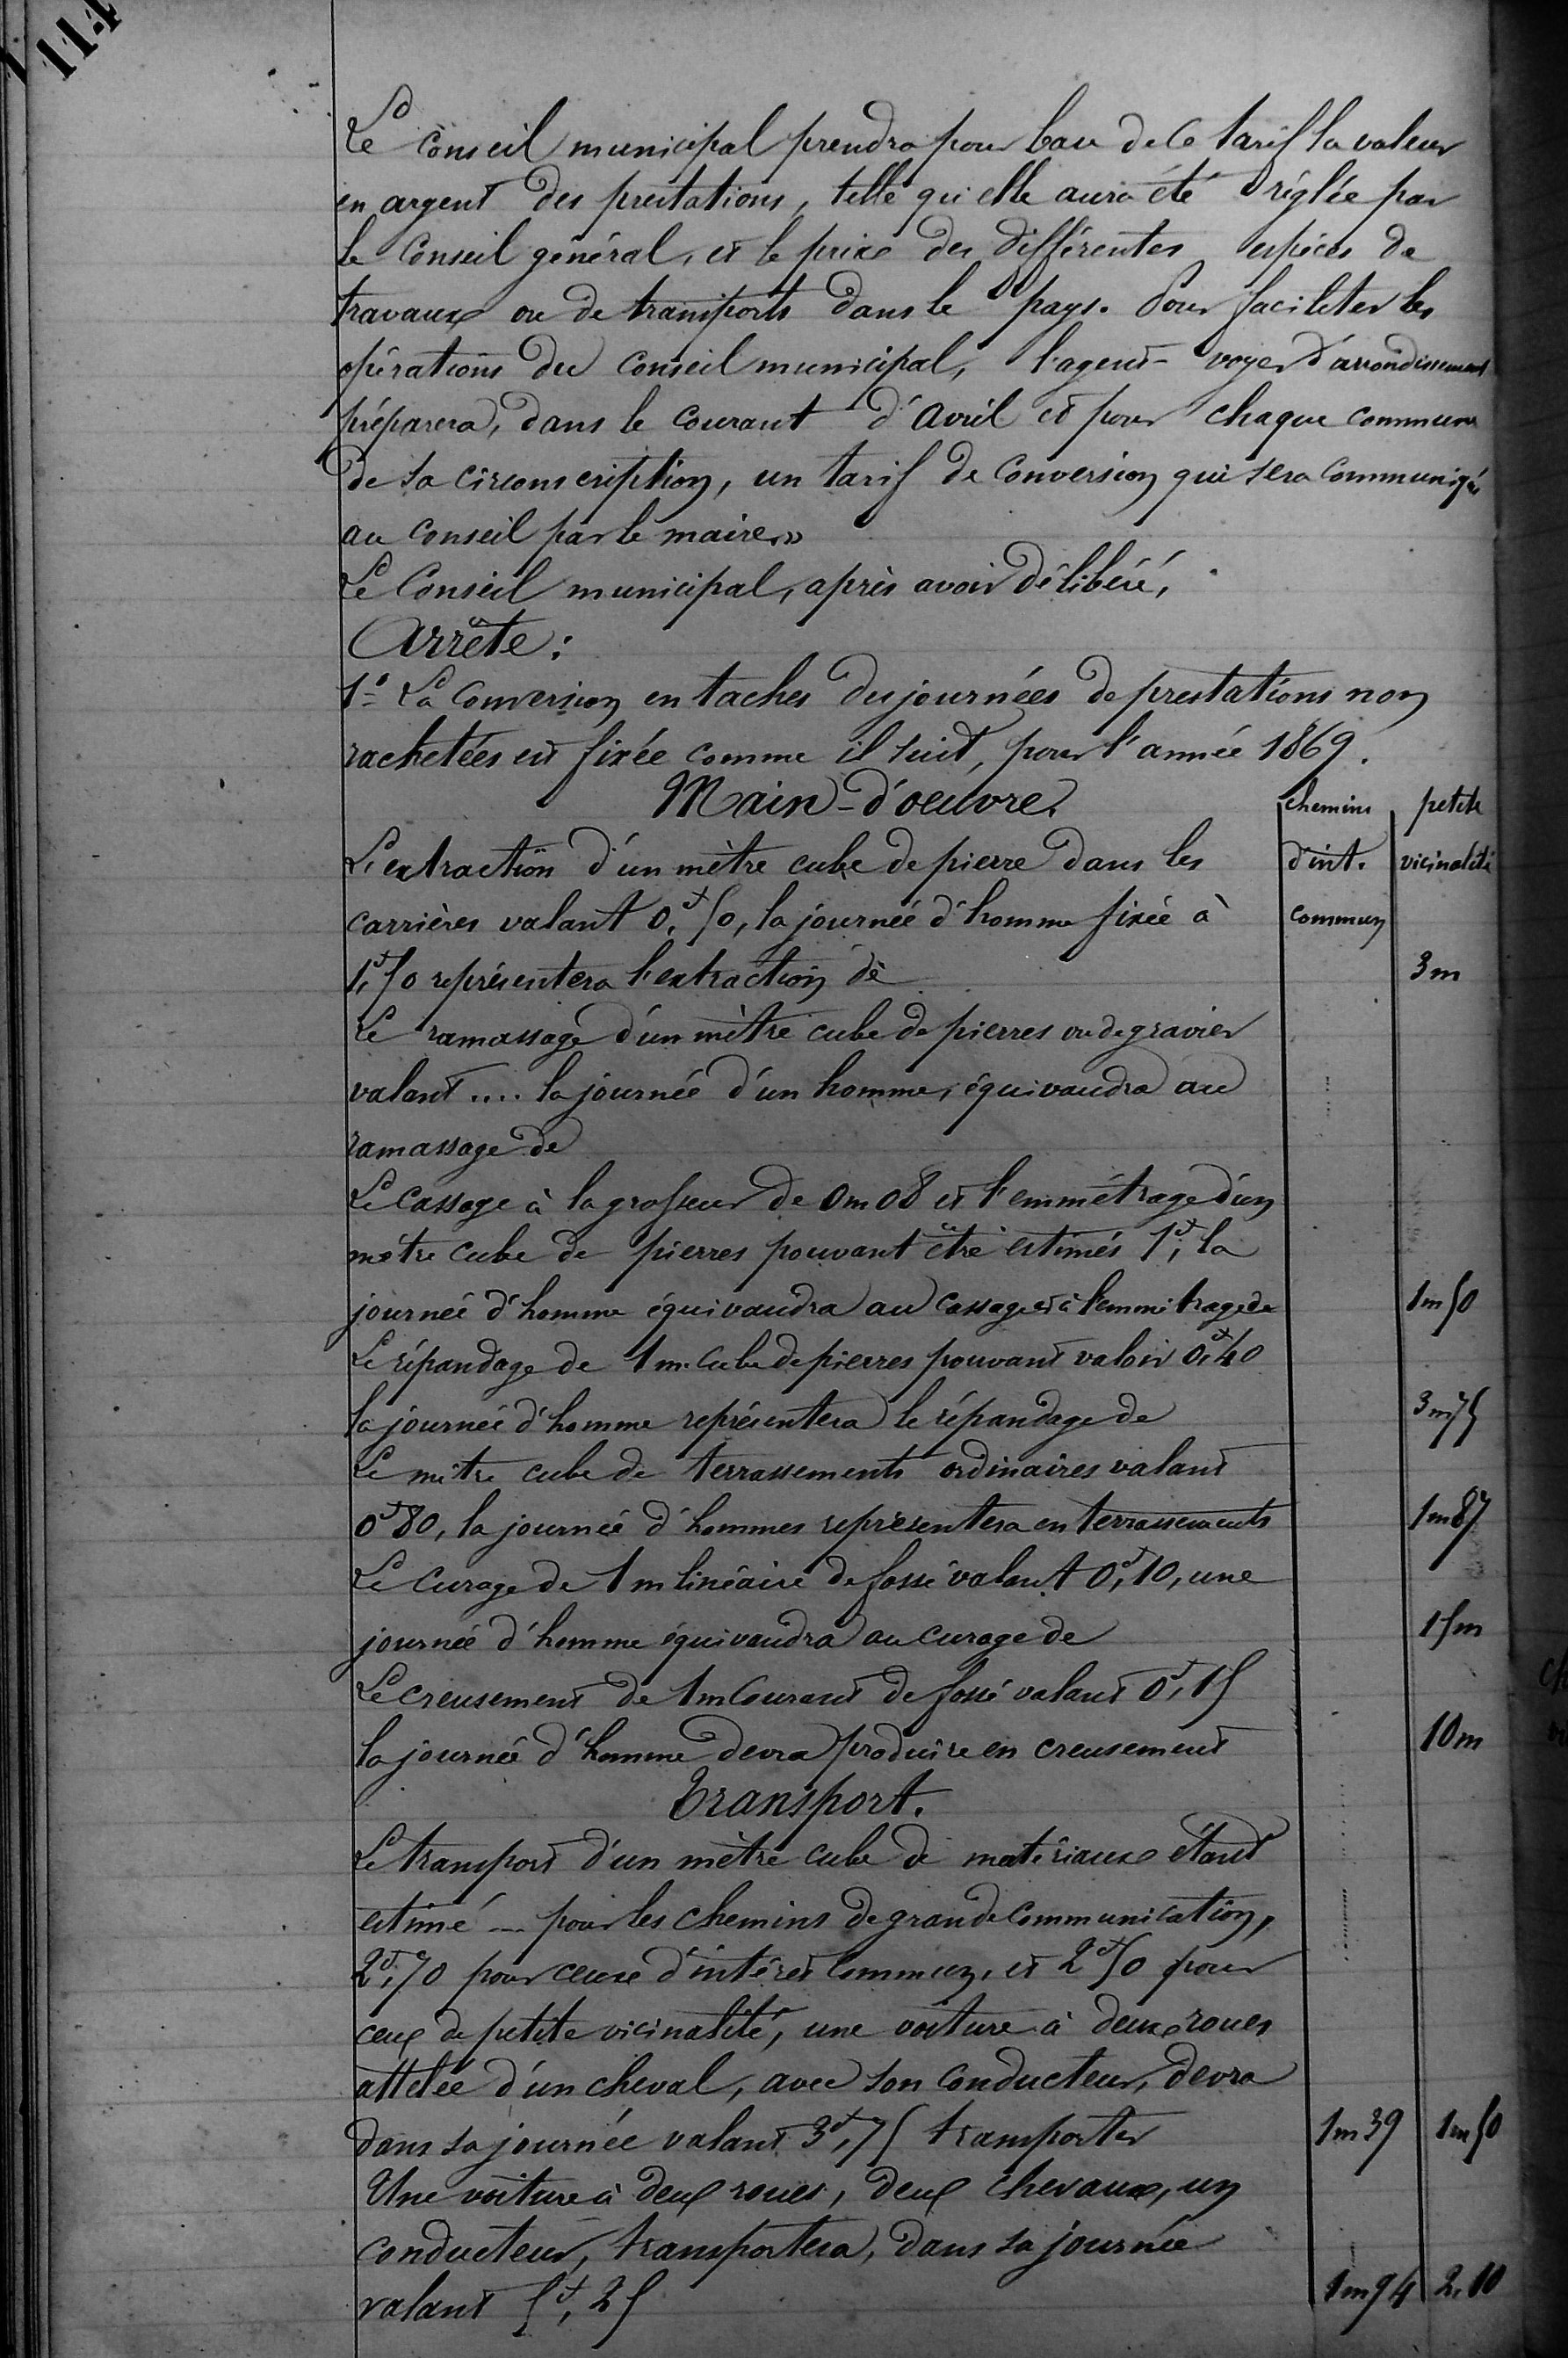 114
Le conseil municipal prendra pour base de ce tarif la valeur
en argent des prestations, telle qu'elle aura été réglée par
le Conseil général, et le prix des différentes espèces de
travaux ou de transports dans le pays. Pour faciliter les
opérations du Conseil municipal, l'agent-voyer d'arrondissement
préparera, dans le courant d'avril et pour chaque commune
de sa circonscription, un tarif de conversion qui sera communiqué
au conseil par le maire.»
Le Conseil municipal, après avoir délibéré,
Arrête:
1° La Conversion en taches des journées de prestations non
rachetées est fixée comme il suit, pour l'année 1869.
Main-d'oeuvre. chemins petite
L'extraction d'un mètre cube de pierre dans les d'int. vicinalité
carrières valant 0f,50, la journée d'homme fixée à commun
1f,50 représentera l'extraction de 3m
Le ramassage d'un mètre cube de pierres ou de gravier
valant .... la journée d'un homme, équivaudra au
ramassage de
Le cassage à la grosseur de 0m08 et l'emmétrage d'un
mètre cube de pierres pouvant être estimés 1f, la
journée d'homme équivaudra au cassage et à l'emmétrage de 1m50
Le répandage de 1m. Cube de pierres pouvant valoir 0f,40
la journée d'homme représentera le répandage de 3m75
Le mètre cube de terrassements ordinaires valant
0f80, la journée d'hommes représentera en terrassements 1m87
Le Curage de 1m linéaire de fossé valant 0f,10, une
journée d'homme équivaudra au curage de 15m
Le creusement de 1m Courant de fossé valant 0f,15
la journée d'homme devra produire en creusement 10m
Transport.
Le transport d'un mètre cube de matériaux étant
estimé ... pour les chemins de grande Communication,
2f,70 pour ceux d'intérêt Commun, et 2f50 pour
ceux de petite vicinalité, une voiture à deux roues
attelée d'un cheval, avec son conducteur, devra
dans sa journée valant 3f,75 transporter 1m39 1m50
Une voiture à deux roues, deux chevaux, un
conducteur, transportera, dans sa journée
valant 5f,25 1m94 2.10